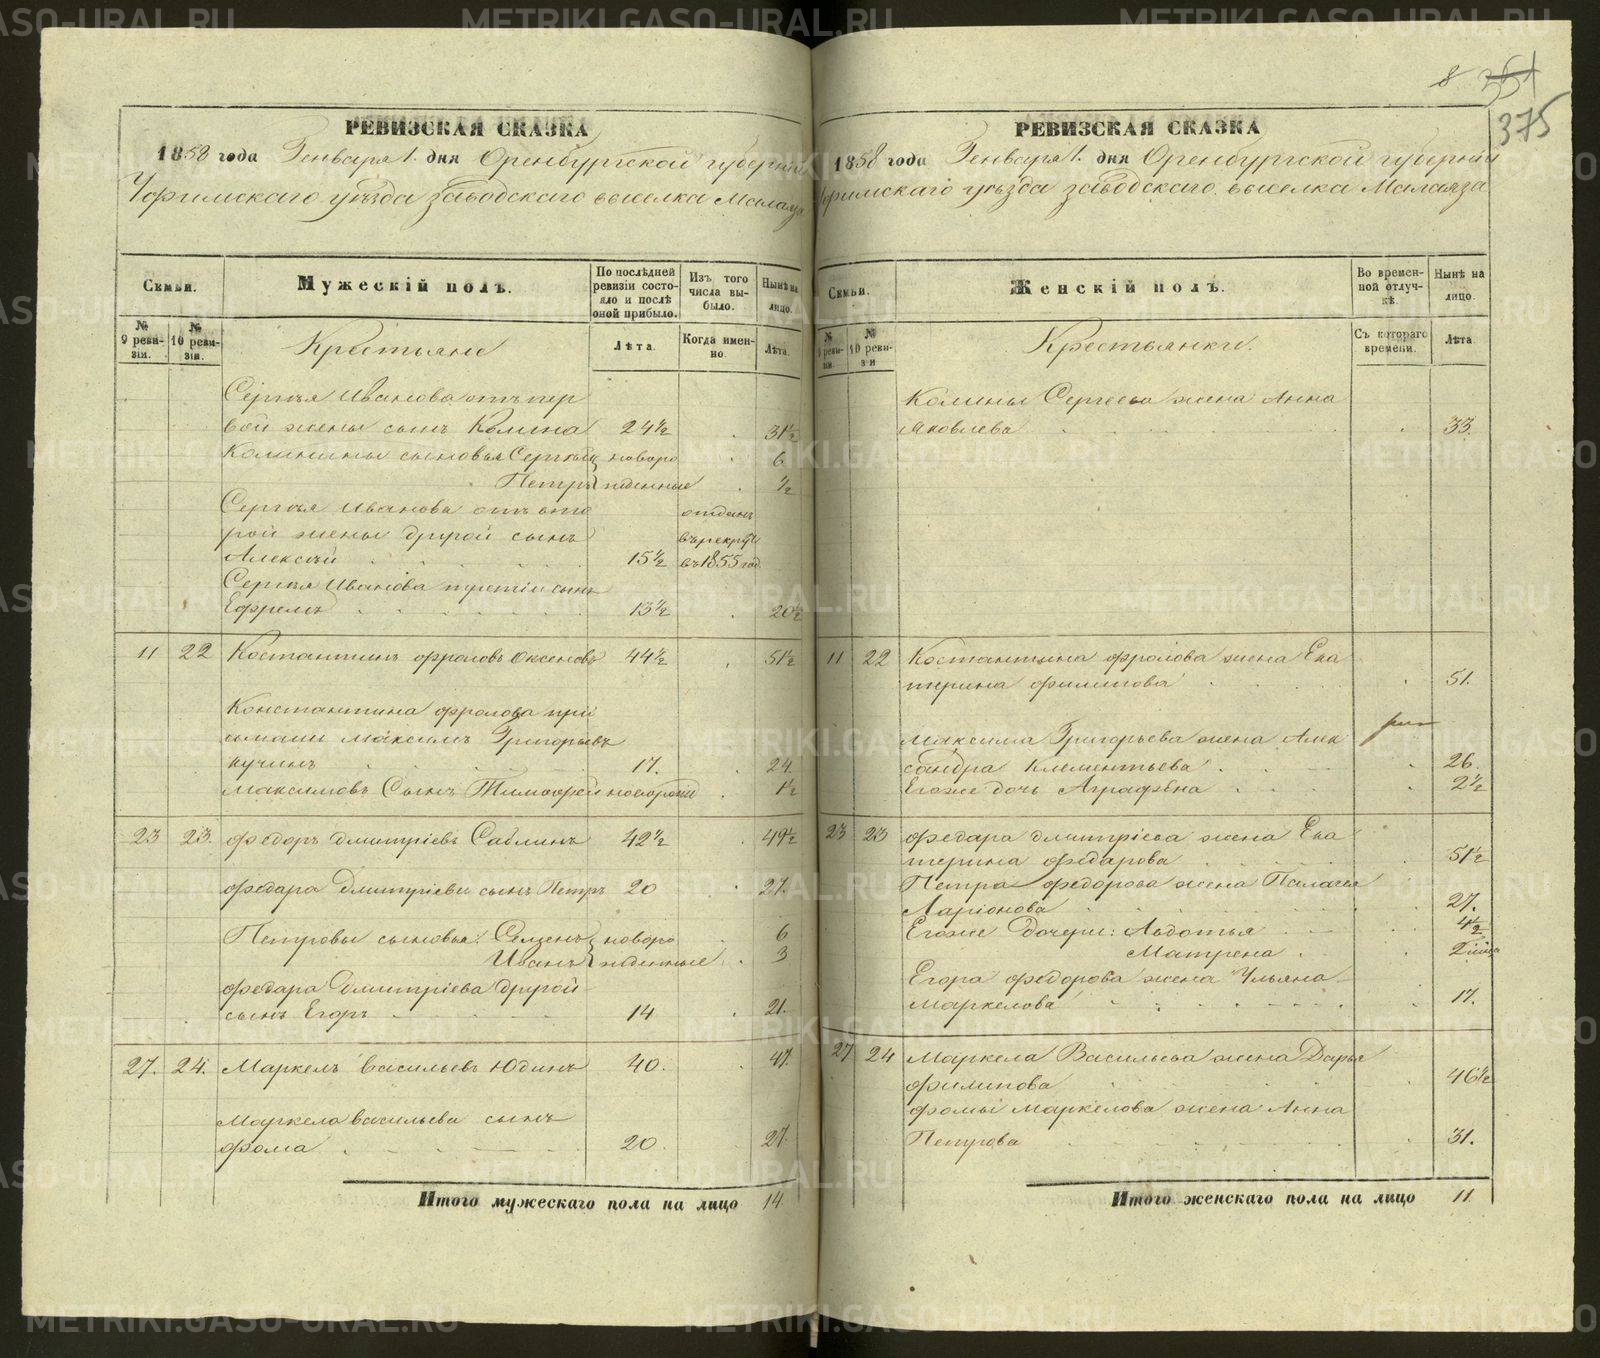 8 351
375
РЕВИЗСКАЯ СКАЗКА
1858 года Генваря 1. дня Оренбургской губерніи
Уфимскаго уѣзда заводскаго выселка Малаяза
Семьи.
Мужескій полъ.
По послѣдней ревизіи состояло и послѣ оной прибыло.
Изъ того числа выбыло.
Нынѣ на лицо.
№ 9 ревизіи.
№ 10 ревизіи.
Крестьяне
Лѣта.
Когда именно.
Лѣта.
Сергѣя Иванова отъ пер
вой жены сынъ Калина 24½ 31½
Калинины сыновья Сергѣй новоро 6
Петръ жденные ½
Сергѣя Иванова отъ вто отданъ
рой жены другой сынъ въ рекруты
Алексѣй 15½ въ 1855 год
Сергѣя Иванова третій сынъ
Ефремъ 13½ 20½
11 22 Костантинъ Фроловъ Оксеновъ 44½ 51½
Константина Фролова при
емышъ Максимъ Григорьевъ
Кучинъ 17. 24.
Максимовъ Сынъ Тимофей новорожд 1½
23 23. Федоръ Дмитріевъ Саблинъ 42½ 49½
Федара Дмитріева сынъ Петръ 20 27.
Петровы сыновья: Селуенъ новоро 6
Иванъ жденные 3
Федара Дмитріева другой
сынъ Егоръ 14 21.
27. 24. Маркелъ Васильевъ Юдинъ 40. 47.
Маркела Васильева сынъ
Фома 20. 27.
Итого мужескаго пола на лицо 14.
РЕВИЗСКАЯ СКАЗКА
1858 года Генваря 1. дня Оренбургской губерніи
Уфимскаго уѣзда заводскаго выселка Малаяза
Семьи.
Женскій полъ.
Во временной отлучкѣ.
Нынѣ на лицо.
№ 9 ревизіи
№ 10 ревизіи
Крестьянки.
Съ котораго времени.
Лѣта.
Калины Сергеева жена Анна
Яковлева 33.
11 22 Костантина Фролова жена Ека
терина Филипова 51.
Максима Григорьева жена Алек
сандра Клементьева 26.
Егоже дочь Аграфѣна 2½
23 23 Федара Дмитріева жена Ека
терина Федарова 51½
Петра Федорова жена Пелагея
Ларіонова 27.
Егоже дочери: Авдотья 4½
Матрена
Егора Федорова жена Ульяна
Маркелова 17.
27 24 Маркела Васильева жена Дарья
Филипова 46½
Фомы Маркелова жена Анна
Петрова 31.
Итого женскаго пола на лицо 11.
METRIKI.GASO-URAL.RU